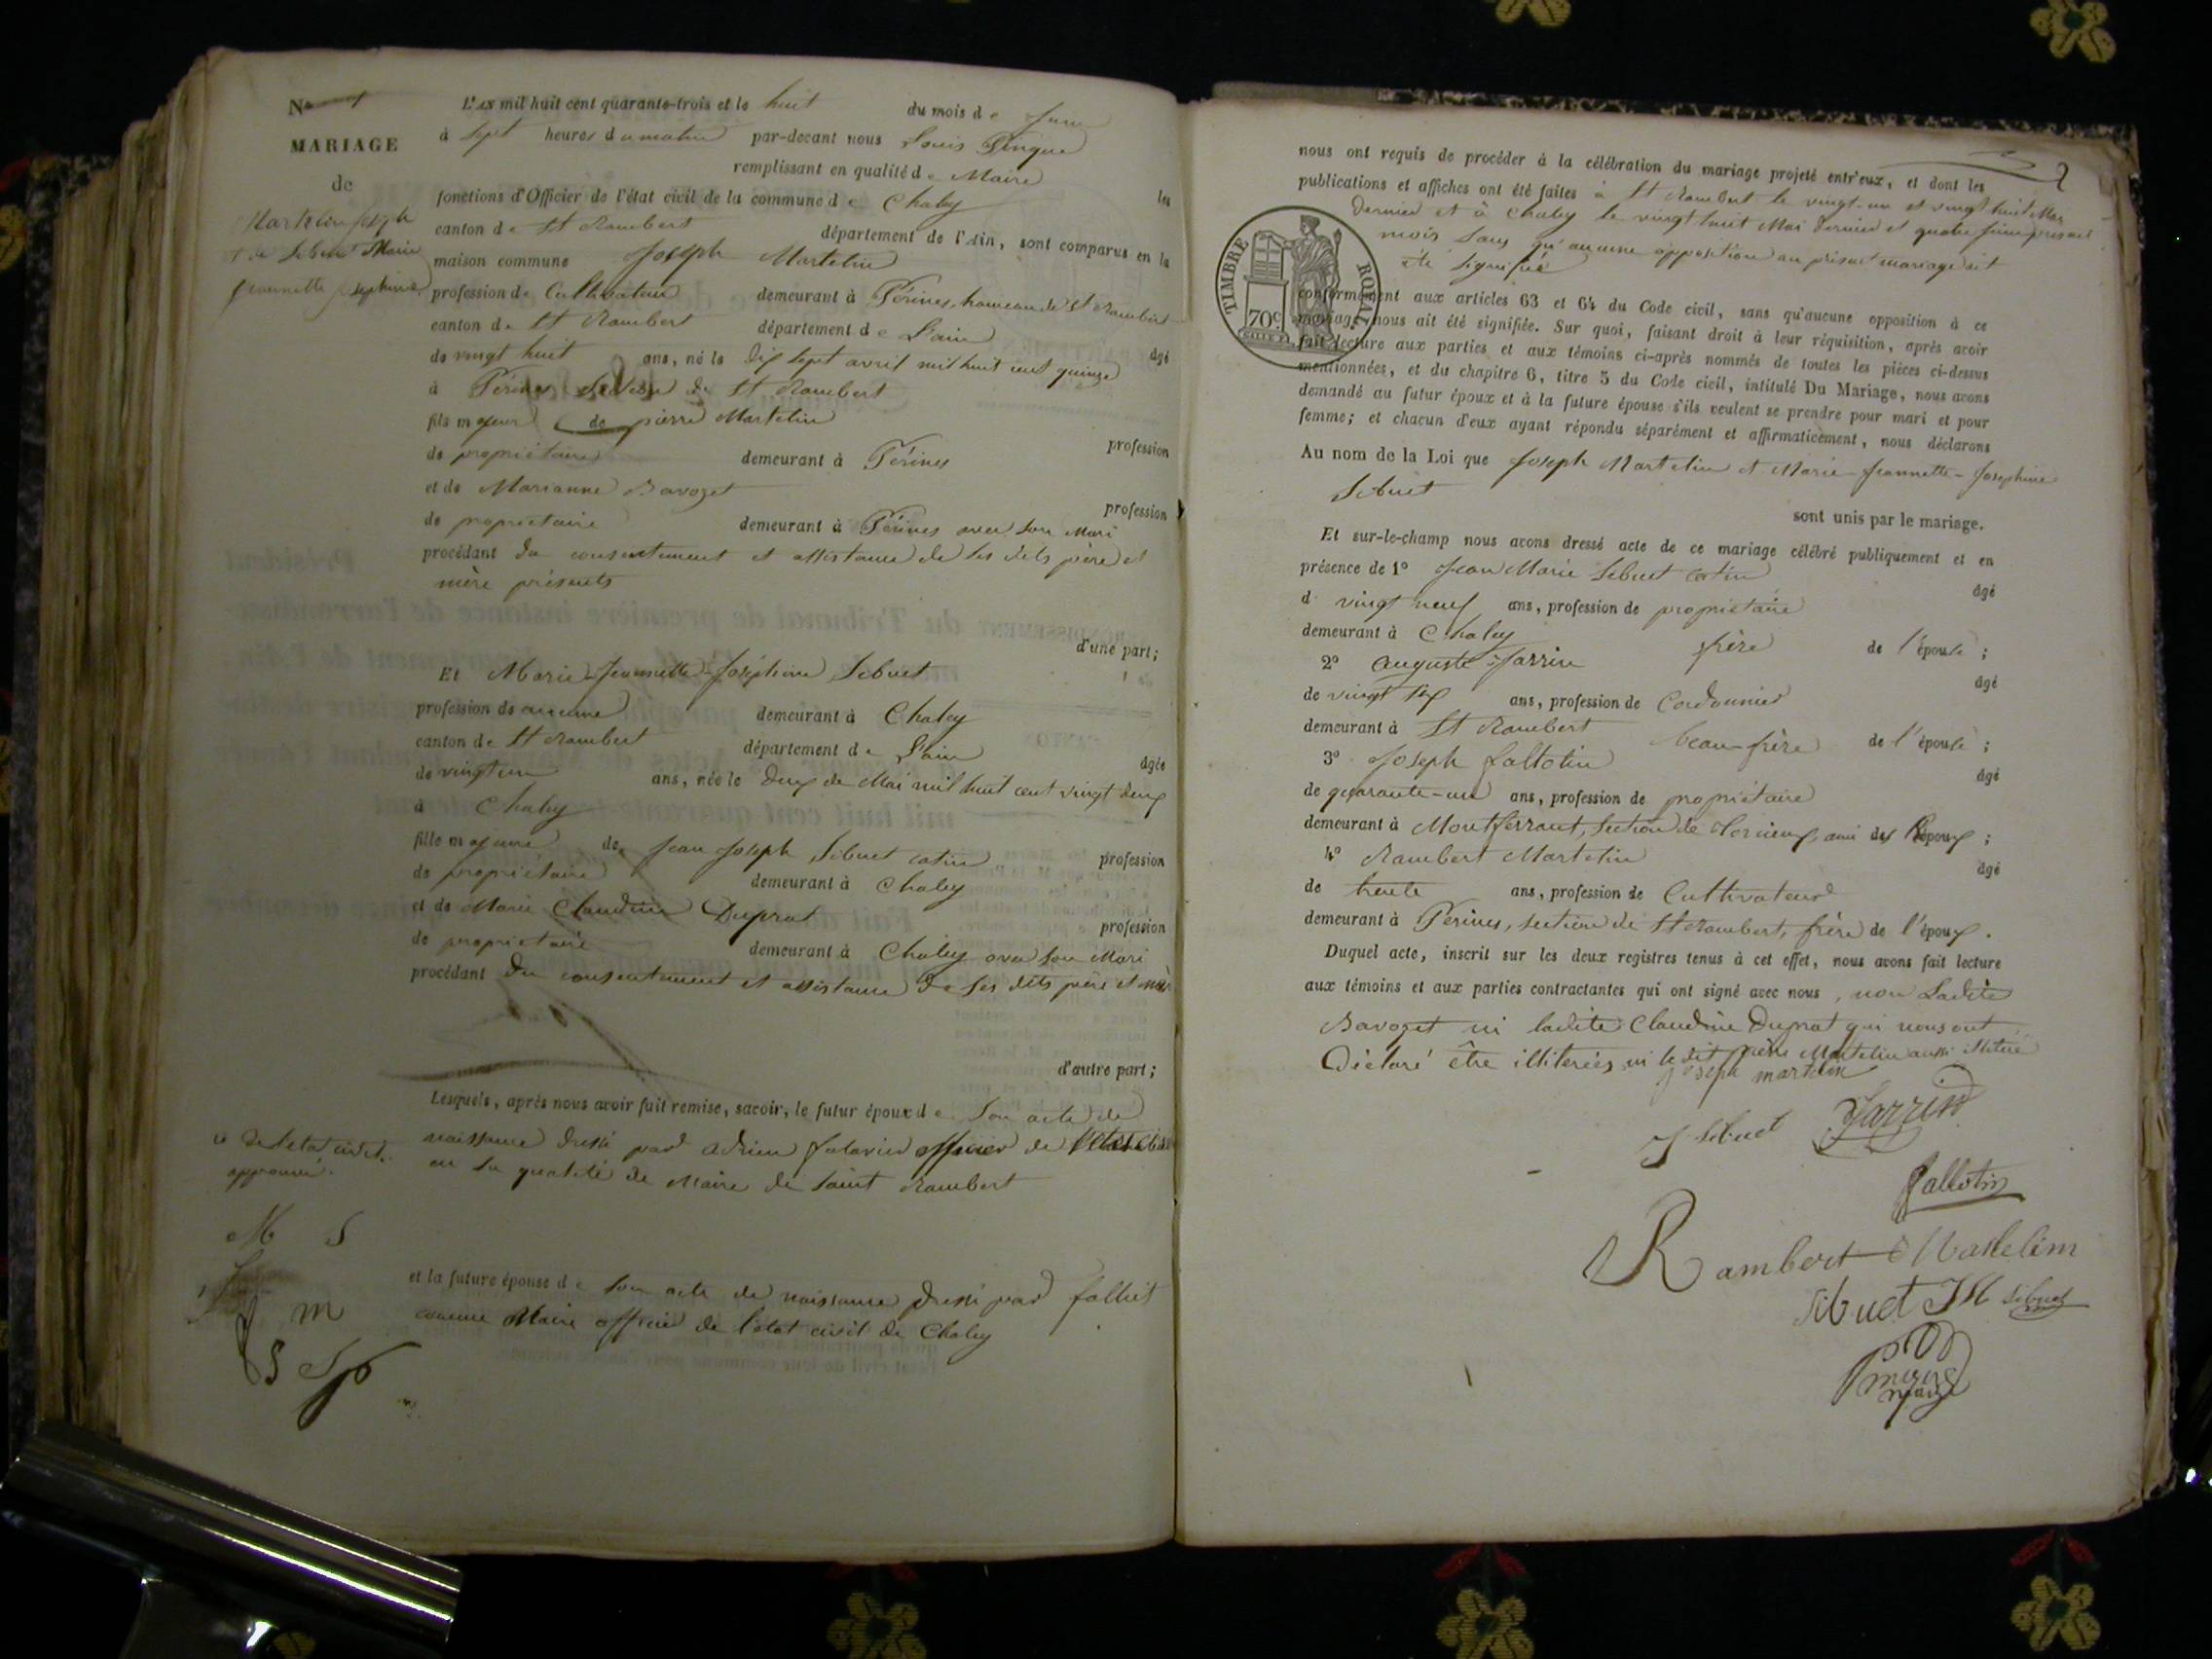 N° 1
MARIAGE
de
Martelin Joseph
et de Sibuet Marie
Jeannette Josephine
L'AN mil huit cent quarante-trois et le huit du mois de Juin
à sept heures du matin par-devant nous Louis
remplissant en qualité de Maire les
fonctions d'Officier de l'état civil de la commune de Chaley
canton de St Rambert département de l'Ain, sont comparus en la
maison commune Joseph Martelin
profession de Cultivateur demeurant à Pérines, hameau de St Rambert
canton de St Rambert département de L'ain âgé
de vingt huit ans, né le dix sept avril mil huit cent quinze
à Pérines Section de St Rambert
fils majeur de pierre Martelin profession
de propriétaire demeurant à Pérines
et de Marianne Savoget profession
de propriétaire demeurant à Pérines avec son Mari
procédant du consentement et assistance de ses dits père et
mère présents
d'une part;
Et Marie-Jeannette-Joséphine Sibuet
profession de aucune demeurant à Chaley
canton de St Rambert département de L'ain âgée
de vingt un ans, née le deux de Mai mil huit cent vingt deux
à Chaley
fille majeure de Jean Joseph Sibuet cotin profession
de propriétaire demeurant à Chaley
et de Marie Claudine Duprat profession
de propriétaire demeurant à Chaley avec son Mari
procédant du consentement et assistance de ses dits père et mère
d'autre part;
Lesquels, après nous avoir fait remise, savoir, le futur époux de son acte de
naissance dressé par adrien officier de l'état civil
en sa qualité de Maire de Saint Rambert
de l'etat civil.
approuvé.
M S
J m
S
et la future épouse de son acte de naissance dressé par falliet
comme Maire officier de l'état civil de Chaley
2
nous ont requis de procéder à la célébration du mariage projeté entr'eux, et dont les
publications et affiches ont été faites à St Rambert le vingt-un et vingt huit Mai
dernier et à Chaley le vingt huit Mai dernier et quatre Juin présent
mois sans qu'aucune opposition au présent mariage ait
été signifiée
TIMBRE ROYAL
70c
conformément aux articles 63 et 64 du Code civil, sans qu'aucune opposition à ce
mariage nous ait été signifiée. Sur quoi, faisant droit à leur réquisition, après avoir
fait lecture aux parties et aux témoins ci-après nommés de toutes les pièces ci-dessus
mentionnées, et du chapitre 6, titre 5 du Code civil, intitulé Du Mariage, nous avons
demandé au futur époux et à la future épouse s'ils veulent se prendre pour mari et pour
femme; et chacun d'eux ayant répondu séparément et affirmativement, nous déclarons
Au nom de la Loi que Joseph Martelin et Marie-Jeannette-Josephine
Sibuet
sont unis par le mariage.
Et sur-le-champ nous avons dressé acte de ce mariage célébré publiquement et en
présence de 1° Jean Marie Sibuet cotin âgé
de vingt neuf ans, profession de propriétaire
demeurant à Chaley frère de l'épouse;
2° Auguste Jarrin âgé
de vingt six ans, profession de Cordonnier
demeurant à St Rambert beau-frère de l'épouse;
3° Joseph fallotin âgé
de quarante-un ans, profession de propriétaire
demeurant à Montferrant, section de Torcieux, ami des époux;
4° Rambert Martelin âgé
de trente ans, profession de Cultivateur
demeurant à Pérines, section de St Rambert, frère de l'époux.
Duquel acte, inscrit sur les deux registres tenus à cet effet, nous avons fait lecture
aux témoins et aux parties contractantes qui ont signé avec nous, non Ladite
Savoget ni ladite Claudine Duprat qui nous ont
déclaré être illiterées ni le dit Pierre Martelin aussi illiteré
joseph martelin
J Sibuet Jarrin
fallotin
Rambert Martelin
Sibuet JM Sibuet
maire